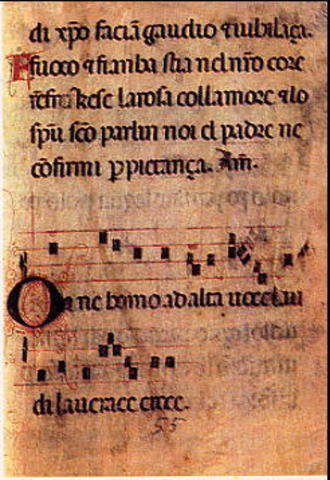 di xp̄o faciā gaudio ⁊ iubilaça.
Fuoco ⁊ fianba sia nel nr̄o core
la rosa coll amore ⁊ lo
spū sc̄o parlin noi el padre ne
cōfirmi p pietança. Am̄.
Og ne homo ad alta uoce lau
di la uerace croce.
55